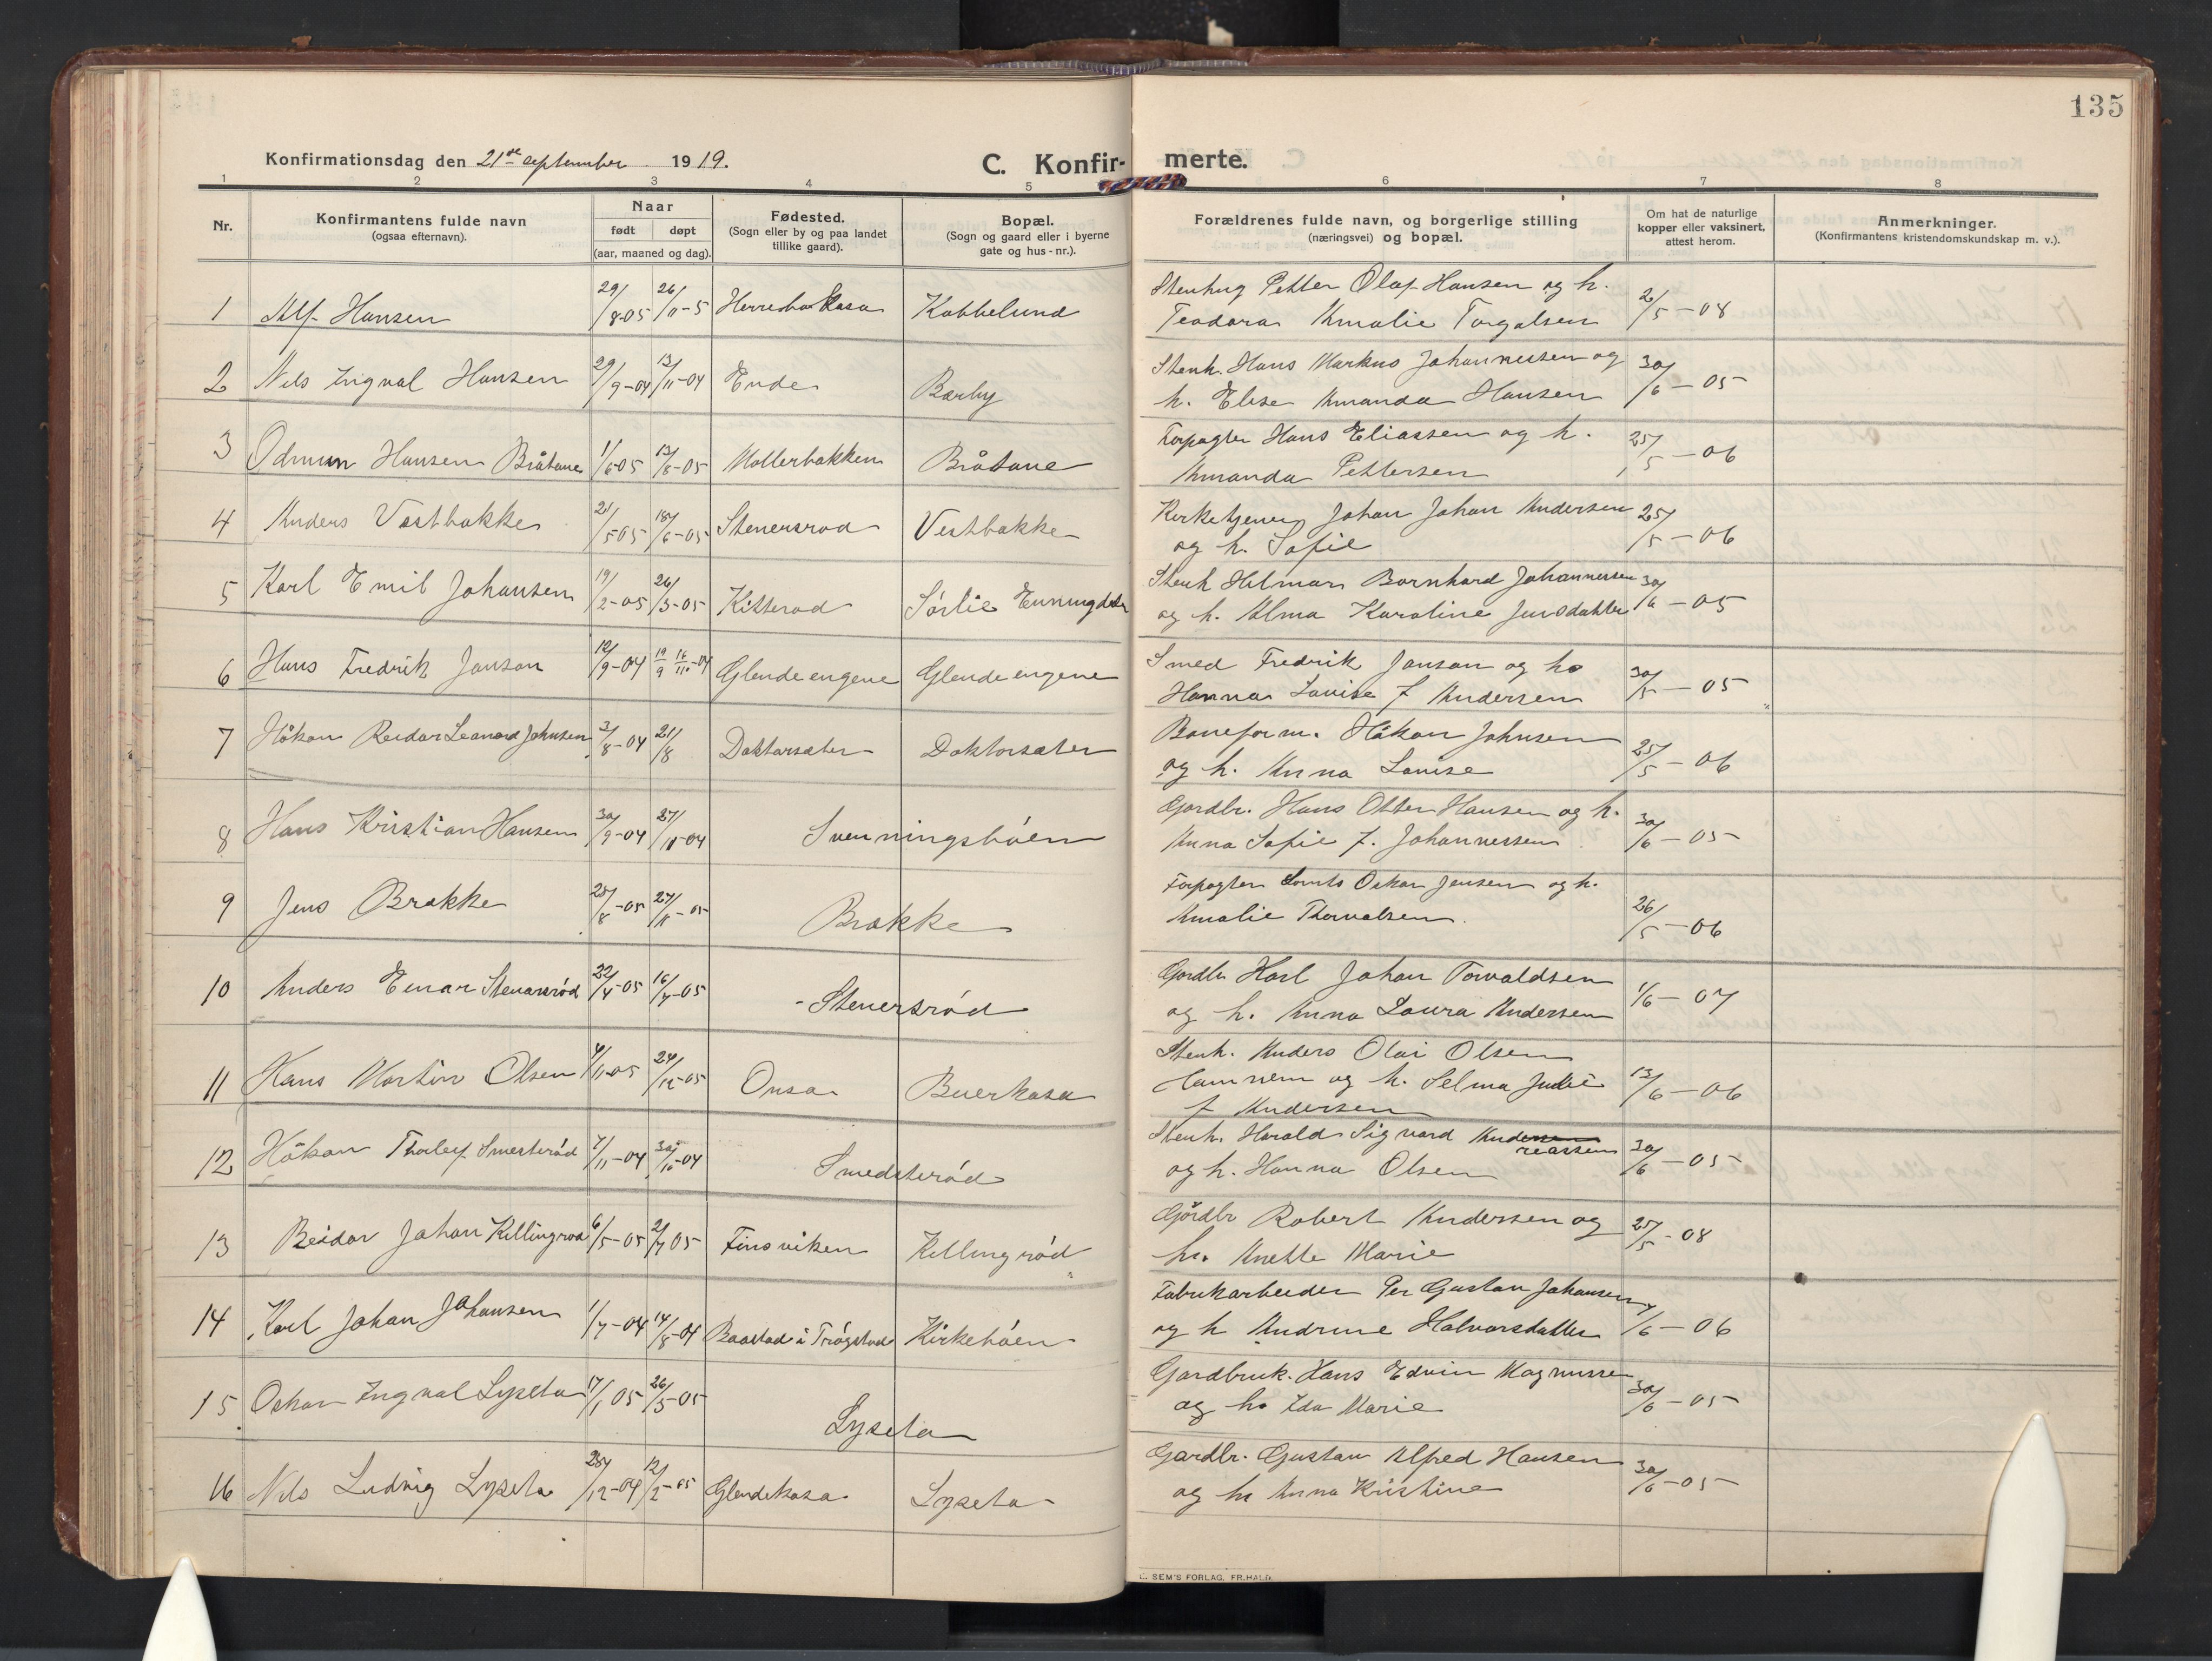 135
Konfirmationsdag den 21de september 1919.
C. Konfir- merte.
1 2 3 4 5 6 7 8
Nr.
Konfirmantens fulde navn
(ogsaa efternavn).
Naar
født døpt
(aar, maaned og dag).
Fødested.
(Sogn eller by og paa landet
tillike gaard).
Bopæl.
(Sogn og gaard eller i byerne
gate og hus-nr.).
Forældrenes fulde navn, og borgerlige stilling
(næringsvei) og bopæl.
Om hat de naturlige
kopper eller vaksinert,
attest herom.
Anmerkninger.
(Konfirmantens kristendomskundskap m. v.).
1 Alf Hansen 29/8-05 26/11-5 Herrebokasa Kabbelund
Stenhug Petter Olaf Hansen og h.
Teodora Amalie Torgalsen 2/5-08
2 Nils Ingval Hansen 29/9-04 13/11-04 Ende Barby
Stenh. Hans Markus Johannessen og
h. Elise Amanda Hansen 30/6-05
3 Odmun Hansen Bråtane 1/6-05 13/8-05 Mollerbakken Bråtane
Forpagter Hans Eliassen og h.
Amanda Pettersen 25/5-06
4 Anders Vestbakke 21/5-05 18/6-05 Stenersrod Vestbakke
Kirketjener Johan Johan Andersen
og h. Sofie 25/5-06
5 Karl Emil Johansen 19/2-05 26/3-05 Kitterod Sørlie Enningdalen
Stenh Hilmar Bernhard Johannessen
og h. Alma Karoline Jensdatter 30/6-05
6 Hans Fredrik Janson 12/9-04 19/9 16/10-04 Glende engene Glende engene
Smed Fredrik Janson og h.
Hanna Lovise f Andersen 30/5-05
7 Håkon Reidar Leonard Johnsen 3/8-04 21/8 Doktorsæter Doktorsæter
Baneform. Håkon Johnsen
og h. Anna Lovise 25/5-06
8 Hans Kristian Hansen 30/9-04 27/11-04 Svenningsbøen
Gardbr. Hans Otter Hansen og h.
Anna Sofie f. Johannessen 30/6-05
9 Jens Brække 25/8-05 27/11-05 Brække
Forpagter Oskar Jensen og h.
Amalie Thorvalsen 26/5-06
10 Anders Einar Stenersrød 22/4-05 16/7-05 Stenersrød
Gardbr Karl Johan Torvaldsen
og h. Anna Laura Andersen 1/6-07
11 Hans Martin Olsen 4/11-05 24/12-05 Onsø Buerkasa
Stenh. Anders Olai Olsen
og h. Selma Julie
f Andersen 13/6-06
12 Håkon Thorleif Smesterød 7/11-04 30/10-04 Smedsterød
Stenh. Harald Sigvard Andreassen
og h. Hanna Olsen 30/6-05
13 Reidar Johan Killingrød 6/5-05 2/7 05 Finsviken Killingrød
Gårdbr Robert Andersen og
h. Anette Marie 25/5-08
14 Karl Johan Johansen 1/7-04 14/8-04 Baastad i Trøgstad Kirkebøen
Fabrikarbeider Per Gustav Johansen
og h Andrine Halvorsdatter 7/6-06
15 Oskar Ingval Lyseto 17/1 05 26/3-05 Lyseto
Gardbruk. Hans Edvin Magnussen
og h. Ida Marie 30/6-05
16 Nils Ludvig Lyseto 28/12-04 12/2-05 Glendekasa Lyseto
Gardbr. Gustav Alfred Hansen
og h. Anna Kristine 30/6-05
SEM'S FORLAG, FR.HALD.